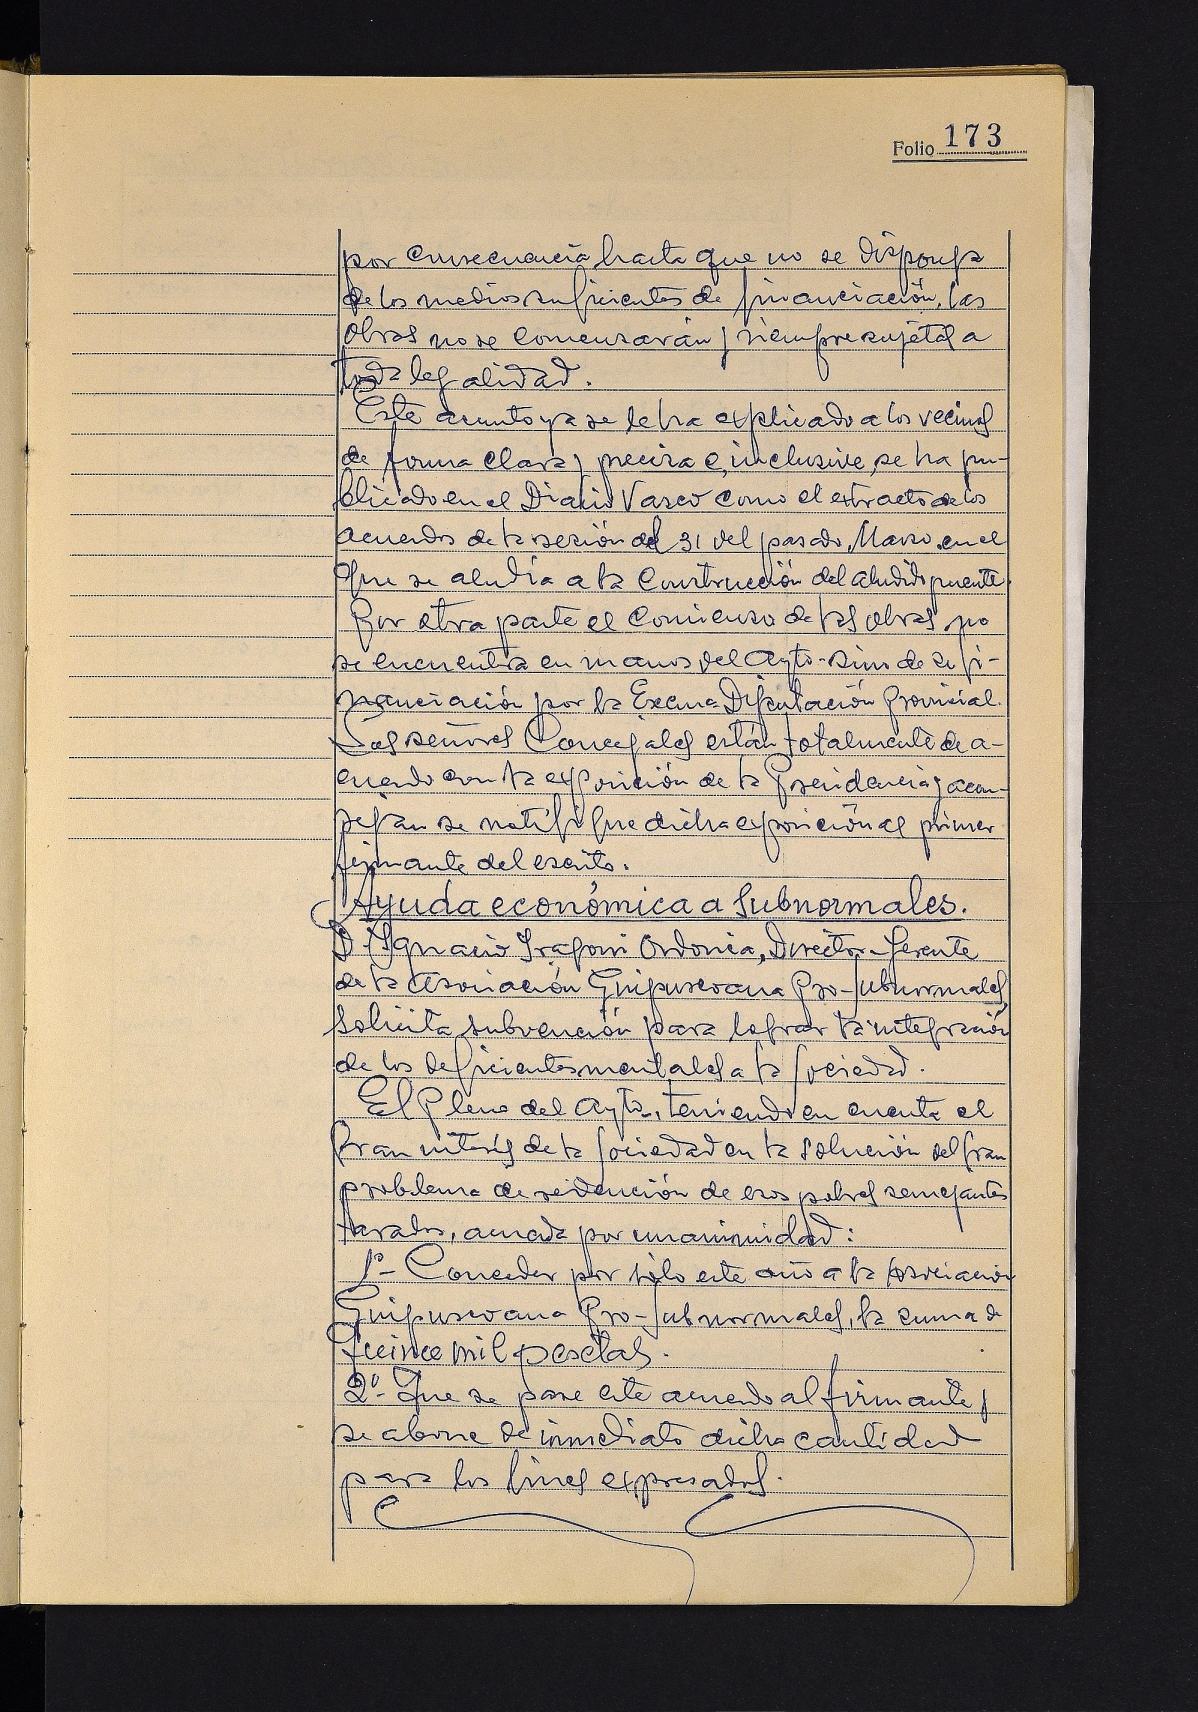 Folio 173
por consecuencia hasta que no se disponga
de los medios suficientes de financiación, las
obras no se comenzarán y siempre sujetas a
toda legalidad.
Este asunto ya se le ha explicado a los vecinos
de forma clara y precisa e, inclusive, se ha pu-
blicado en el Diario Vasco como el extracto de los
acuerdos de la sesión del 31 del pasado, Marzo, en el
que se aludía a la construcción del aludido puente.
Por otra parte el comienzo de las obras, no
se encuentra en manos del Ayto. sino de su fi-
nanciación por la Excma Diputación Provincial.
Los señores Concejales están totalmente de a-
cuerdo con la exposición de la Presidencia y acon-
sejan se notifique dicha exposición al primer
firmante del escrito.
Ayuda económica a Subnormales.
D. Ignacio Director-Gerente
de la Asociación Guipuzcoana Pro-Subnormales,
solicita subvención para lograr la integración
de los deficientes mentales a la Sociedad.
El Pleno del Ayto., teniendo en cuenta el
gran interés de la Sociedad en la solución del gran
problema de redención de esos pobres semejantes
tarados, acuerda por unanimidad:
1º- Conceder por sólo este año a la Asociación
Guipuzcoana Pro-Subnormales, la suma de
quince mil pesetas.
2º- Que se pase este acuerdo al firmante y
se abone de inmediato dicha cantidad
para los fines expresados.